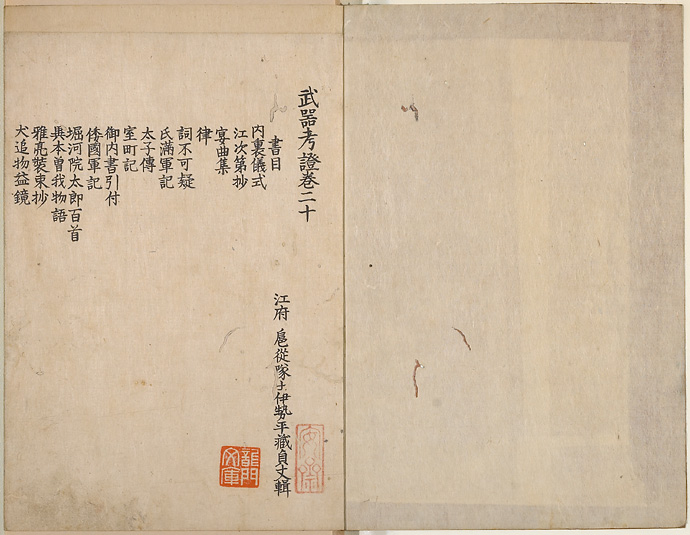 武器考證卷二十
書目
内裏儀式
江次第抄
宴曲集
律
詞不可疑
氏滿軍記
太子傳
室町記
御内書引付
倭國軍記
堀河院太郎百首
異本曽我物語
雅亮裝束抄
犬追物益鏡
江府 扈從隊士伊勢平藏貞丈輯
龍門文庫